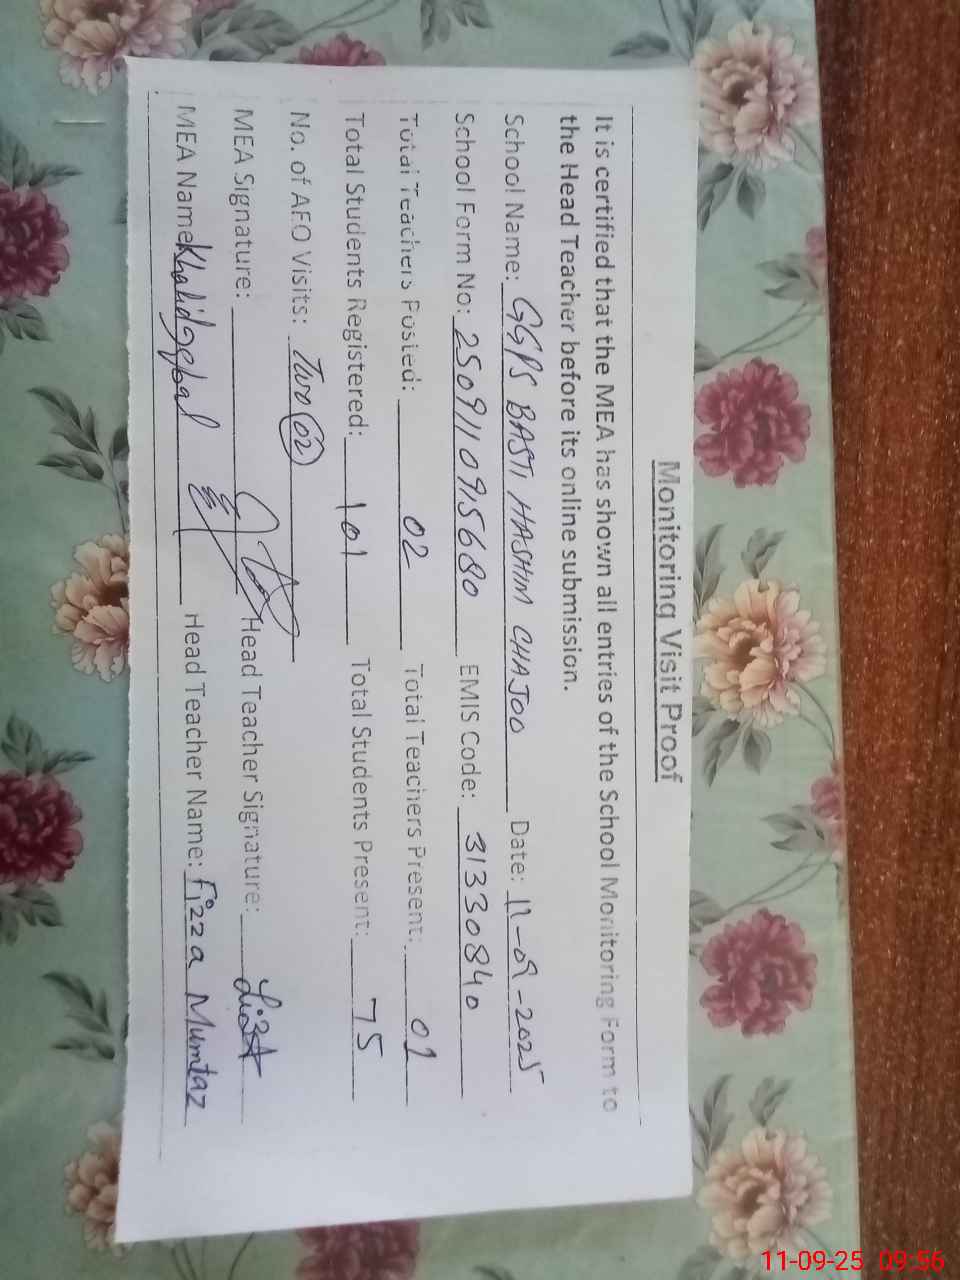 Monitoring Visit Proof
It is certified that the MEA has shown all entries of the School Monitoring Form to
the Head Teacher before its online submission.
School Name: GGPS BASTI HASHIM CHAJOO Date: 11-09-2025
School Form No: 250911095680 EMIS Code: 31330840
Total Teachers Posted: 02 Total Teachers Present: 01
Total Students Registered: 101 Total Students Present: 75
No. of AEO Visits: Two 02
MEA Signature: Head Teacher Signature:
MEA Name Khalid Iqbal Head Teacher Name: Fizza Mumtaz
11-09-25 09:56